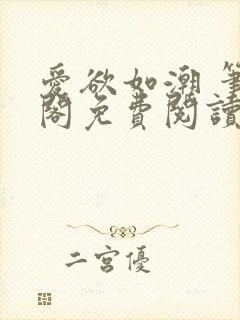 愛欲如潮 筆
閣免費閱讀
二宮優